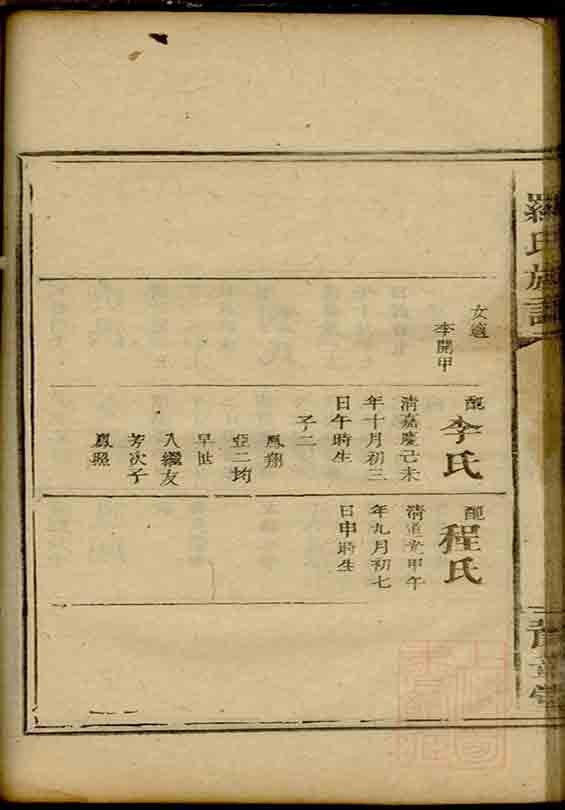 羅氏族譜
女適
李開甲
配李氏
清嘉慶己未
年十月初三
日午時生
子二
鳳翔
亞二均
早世
入繼友
芳次子
鳳照
配程氏
清道光甲午
年九月初七
日申時生